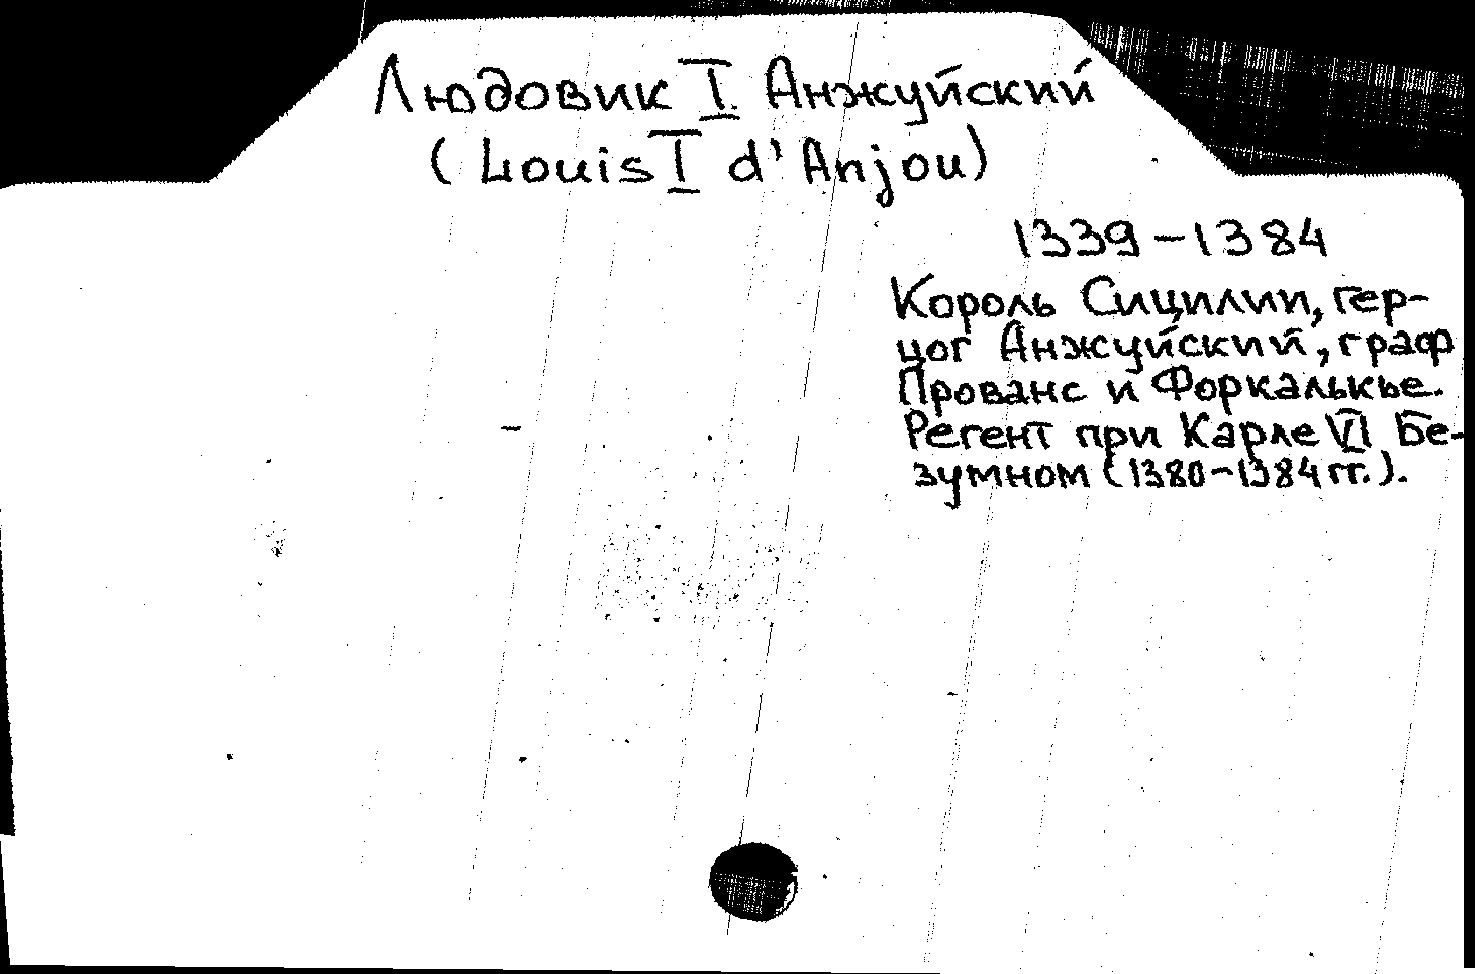 Людовик I. Анжуйский
(Louis I d'Anjou)
1339-1384
Король Сицилии, гер-
цог Анжуйский, граф
Прованс и Форкалькье.
Регент при Карле VI Бе-
зумном (1380-1384 гг.).